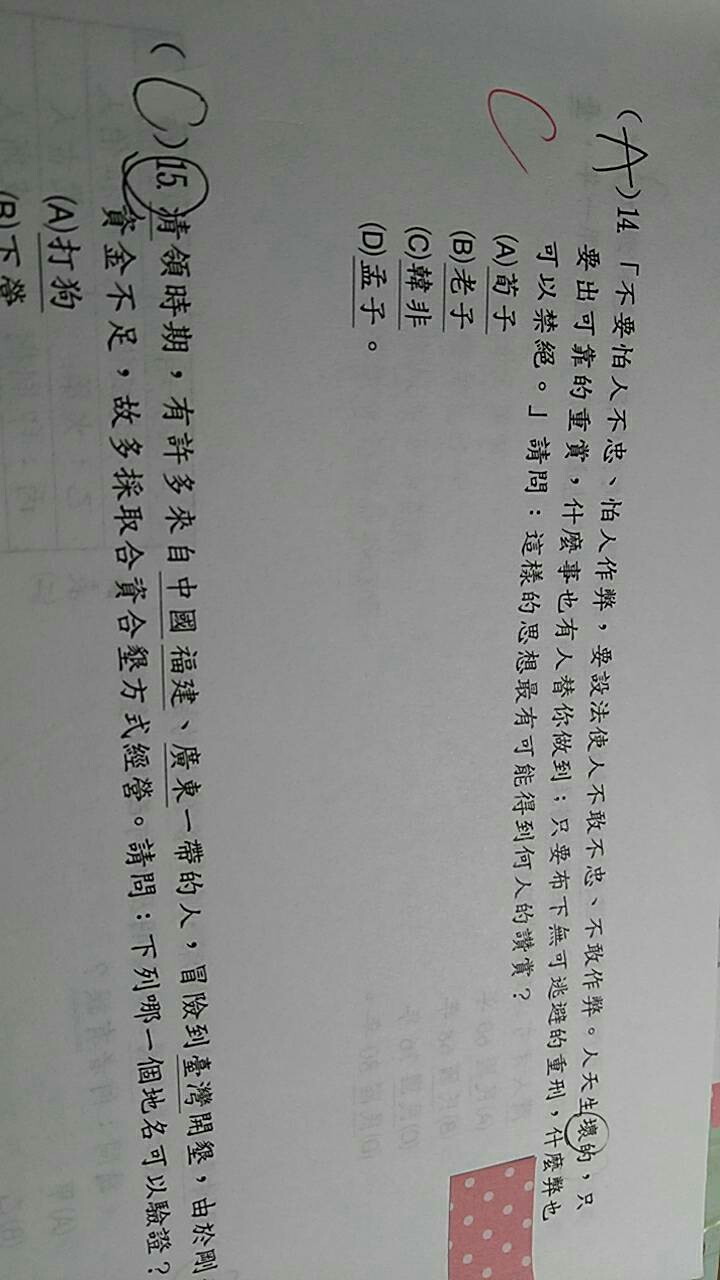 (A)14.「不要怕人不忠、怕人作弊，要設法使人不敢不忠、不敢作弊。人天生壞的，只
要出可靠的重賞，什麼事也有人替你做到；只要布下無可逃避的重刑，什麼弊也
可以禁絕。」請問：這樣的思想最有可能得到何人的讚賞？
(A)荀子
(B)老子
(C)韓非
(D)孟子。
C
(C)15.清領時期，有許多來自中國福建、廣東一帶的人，冒險到臺灣開墾，由於剛
資金不足，故多採取合資合墾方式經營。請問：下列哪一個地名可以驗證？
(A)打狗
(B)下營